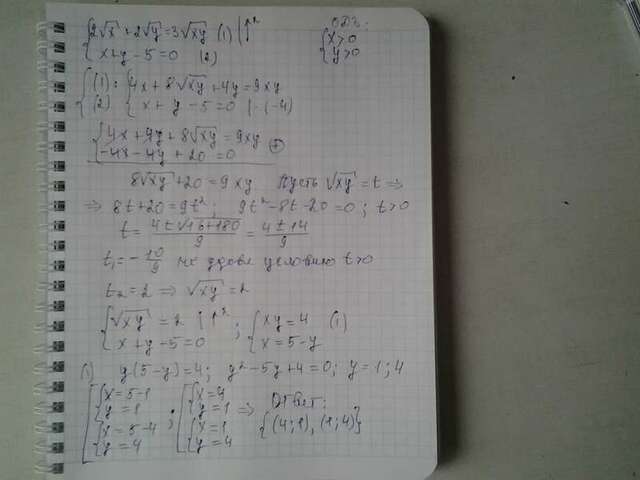 {2√x + 2√y = 3√xy (1) | ↑² ОДЗ:
{x + y - 5 = 0 (2) {x>0
{y>0
{(1): {4x + 8√xy + 4y = 9xy
{(2) {x + y - 5 = 0 |·(-4)
{4x + 4y + 8√xy = 9xy
{-4x - 4y + 20 = 0 ⊕
8√xy + 20 = 9xy Пусть √xy = t ⇒
⇒ 8t + 20 = 9t²; 9t² - 8t - 20 = 0; t>0
t = (4 ± √(16+180))/9 = (4 ± 14)/9
t₁ = -10/9 не удовл условию t>0
t₂ = 2 ⇒ √xy = 2
{√xy = 2 | ↑² ; {xy = 4 (1)
{x + y - 5 = 0 {x = 5 - y
1) y(5-y) = 4; y² - 5y + 4 = 0; y = 1; 4
[{x = 5-1 ; [{x = 4 ⇒ Ответ:
{y = 1 {y = 1 {(4;1), (1;4)}
{x = 5-4 {x = 1
{y = 4 {y = 4